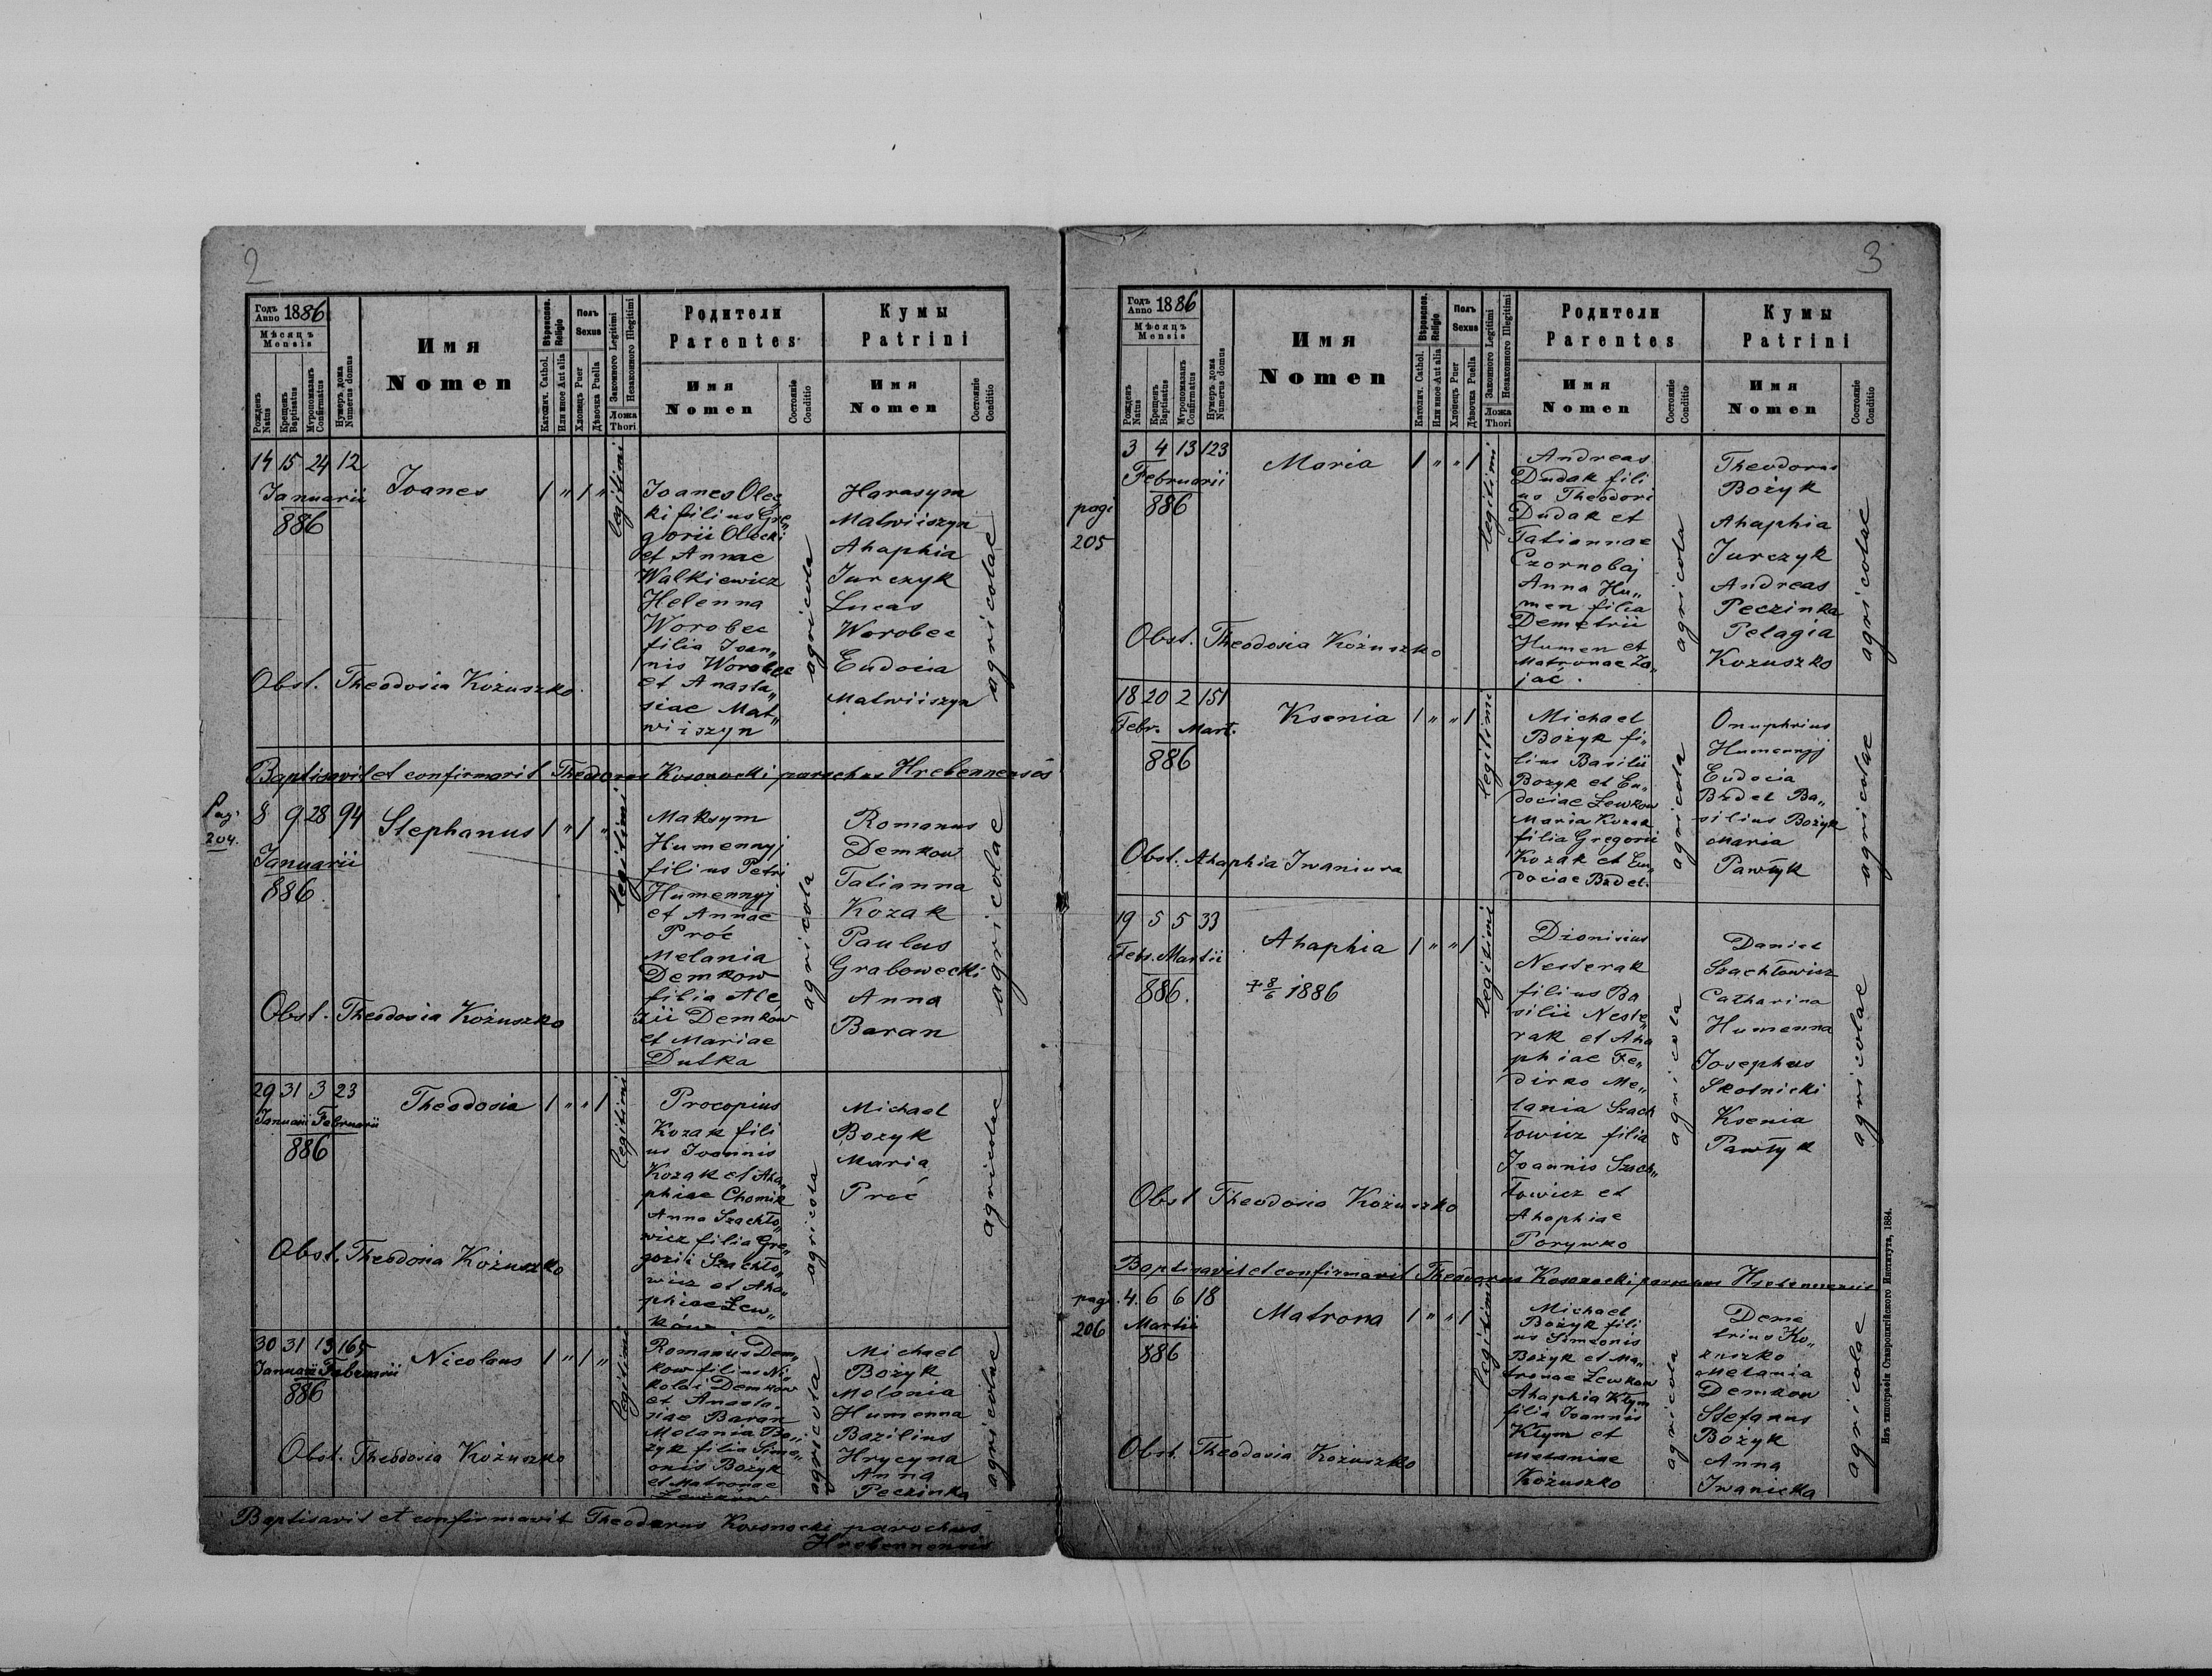 2
Годъ Anno 1886
Мѣсяцъ
Mensis
Рожденъ Natus
Крещенъ Baptisatus
Мѵропомазанъ Confirmatus
Нумеръ дома Numerus domus
Имя
Nomen
Вѣроисповѣд. Religio
Католич. Cathol.
Или иное Aut alia
Полъ
Sexus
Хлопецъ Puer
Дѣвочка Puella
Законного Legitimi
Незаконного Illegitimi
Ложа
Thori
Родители
Parentes
Имя
Nomen
Состояніе
Conditio
Кумы
Patrini
Имя
Nomen
Состояніе
Conditio
14 15 24 12
Januarii
886
Joanes
1 " 1 "
legitimi
Joanes Olec
ki filius Gre„
gorii Olecki
et Annae
Walkiewicz
Helenna
Worobec
filia Joan„
nis Worobec
et Anasta„
siae Mat„
wiiszyn
agricola
Harasym
Matwiiszyn
Ahaphia
Jurczyk
Lucas
Worobec
Eudocia
Matwiiszyn
agricolae
Obst. Theodosia Kożuszko.
Baptisavit et confirmavit Theodorus Kosonocki parochus Hrebennensis
Pag.
204.
8 9 28 94
Januarii
886.
Stephanus
1 " 1 "
legitimi
Maksym
Humennyj
filius Petri
Humennyj
et Annae
Proć
Melania
Demkow
filia Ale
xii Demków
et Mariae
Dutka
agricola
Romanus
Demkow
Tatianna
Kozak
Paulus
Grabowecki
Anna
Baran
agricolae
Obst. Theodosia Kożuszko
29 31 3 23
Januarii Februarii
886
Theodosia
1 " " 1
legitimi
Procopius
Kozak fili
us Joannis
Kozak et Aha„
phiae Chomik
Anna Szachło„
wicz filia Gre„
gorii Szachło„
wicz et Aha„
phiae Lew„
ków
agricola
Michael
Bozyk
Maria
Proć
agricolae
Obst. Theodosia Kożuszko
30 31 13 165
Januarii Februarii
886
Nicolaus
1 " 1 "
legitimi
Romanus Dem„
kow filius Ni„
kolai Demkow
et Anasta„
siae Baran
Melania Bo„
żyk filia Sime„
onis Bożyk
et Matronae
Lewków
agricola
Michael
Bożyk
Melania
Humenna
Bazilius
Hrycyna
Anna
Peczinka
agricolae
Obst. Theodosia Kożuszko
Baptisavit et confirmavit Theodorus Kosonocki parochus
Hrebennensis
3
Годъ Anno 1886
Мѣсяцъ
Mensis
Рожденъ Natus
Крещенъ Baptisatus
Мѵропомазанъ Confirmatus
Нумеръ дома Numerus domus
Имя
Nomen
Вѣроисповѣд. Religio
Католич. Cathol.
Или иное Aut alia
Полъ
Sexus
Хлопецъ Puer
Дѣвочка Puella
Законного Legitimi
Незаконного Illegitimi
Ложа
Thori
Родители
Parentes
Имя
Nomen
Состояніе
Conditio
Кумы
Patrini
Имя
Nomen
Состояніе
Conditio
pagi
205
3 4 13 123
Februarii
886
Maria
1 " " 1
legitimi
Andreas
Dudak fili
us Theodori
Dudak et
Tatiannae
Czornobaj
Anna Hu„
men filia
Demetrii
Humen et
Matronae Za„
jać.
agricola
Theodorus
Bożyk
Ahaphia
Jurczyk
Andreas
Peczinka
Pelagia
Kozuszko
agricolae
Obst. Theodosia Kożuszko
18 20 2 151
Febr. Mart.
886
Ksenia
1 " " 1
legitimi
Michael
Bożyk fi„
lius Basilii
Bozyk et Eu„
dociae Lewkow
Maria Kozak
filia Gregorii
Kozak et Eu„
dociae Bzdel.
agricola
Onuphrius
Humennyj
Eudocia
Bzdel Ba„
silius Bożyk
Maria
Pawłyk
agricolae
Obst. Ahaphia Iwaniura
19 5 5 33
Febr. Martii
886.
Ahaphia
† 8/6 1886
1 " " 1
legitimi
Dionisius
Nesterak
filius Ba
silii Neste„
rak et Aha
phiae Fe„
dirko Me„
lania Szach
łowicz filia
Joannis Szach„
łowicz et
Ahaphiae
Porywko
agricola
Daniel
Szachłowicz
Catharina
Humenna
Josephus
Skolnicki
Ksenia
Pawłyk
agricolae
Obst Theodosia Kożuszko
Baptisavit et confirmavit Theodorus Kosonocki parochus Hrebennensis
pagi.
206
4. 6 6 18
Martii
886
Matrona
1 " " 1
legitimi
Michael
Bożyk fili
us Simeonis
Bożyk et Ma„
tronae Lewkow
Ahaphia Kłym
filia Joannis
Kłym et
Melaniae
Kożuszko
agricola
Deme
trius Ko„
zuszko
Melania
Demkow
Stefanus
Bożyk
Anna
Iwanicka
agricolae
Obst. Theodosia Kożuszko
Изъ типографіи Ставропигійского Института, 1884.